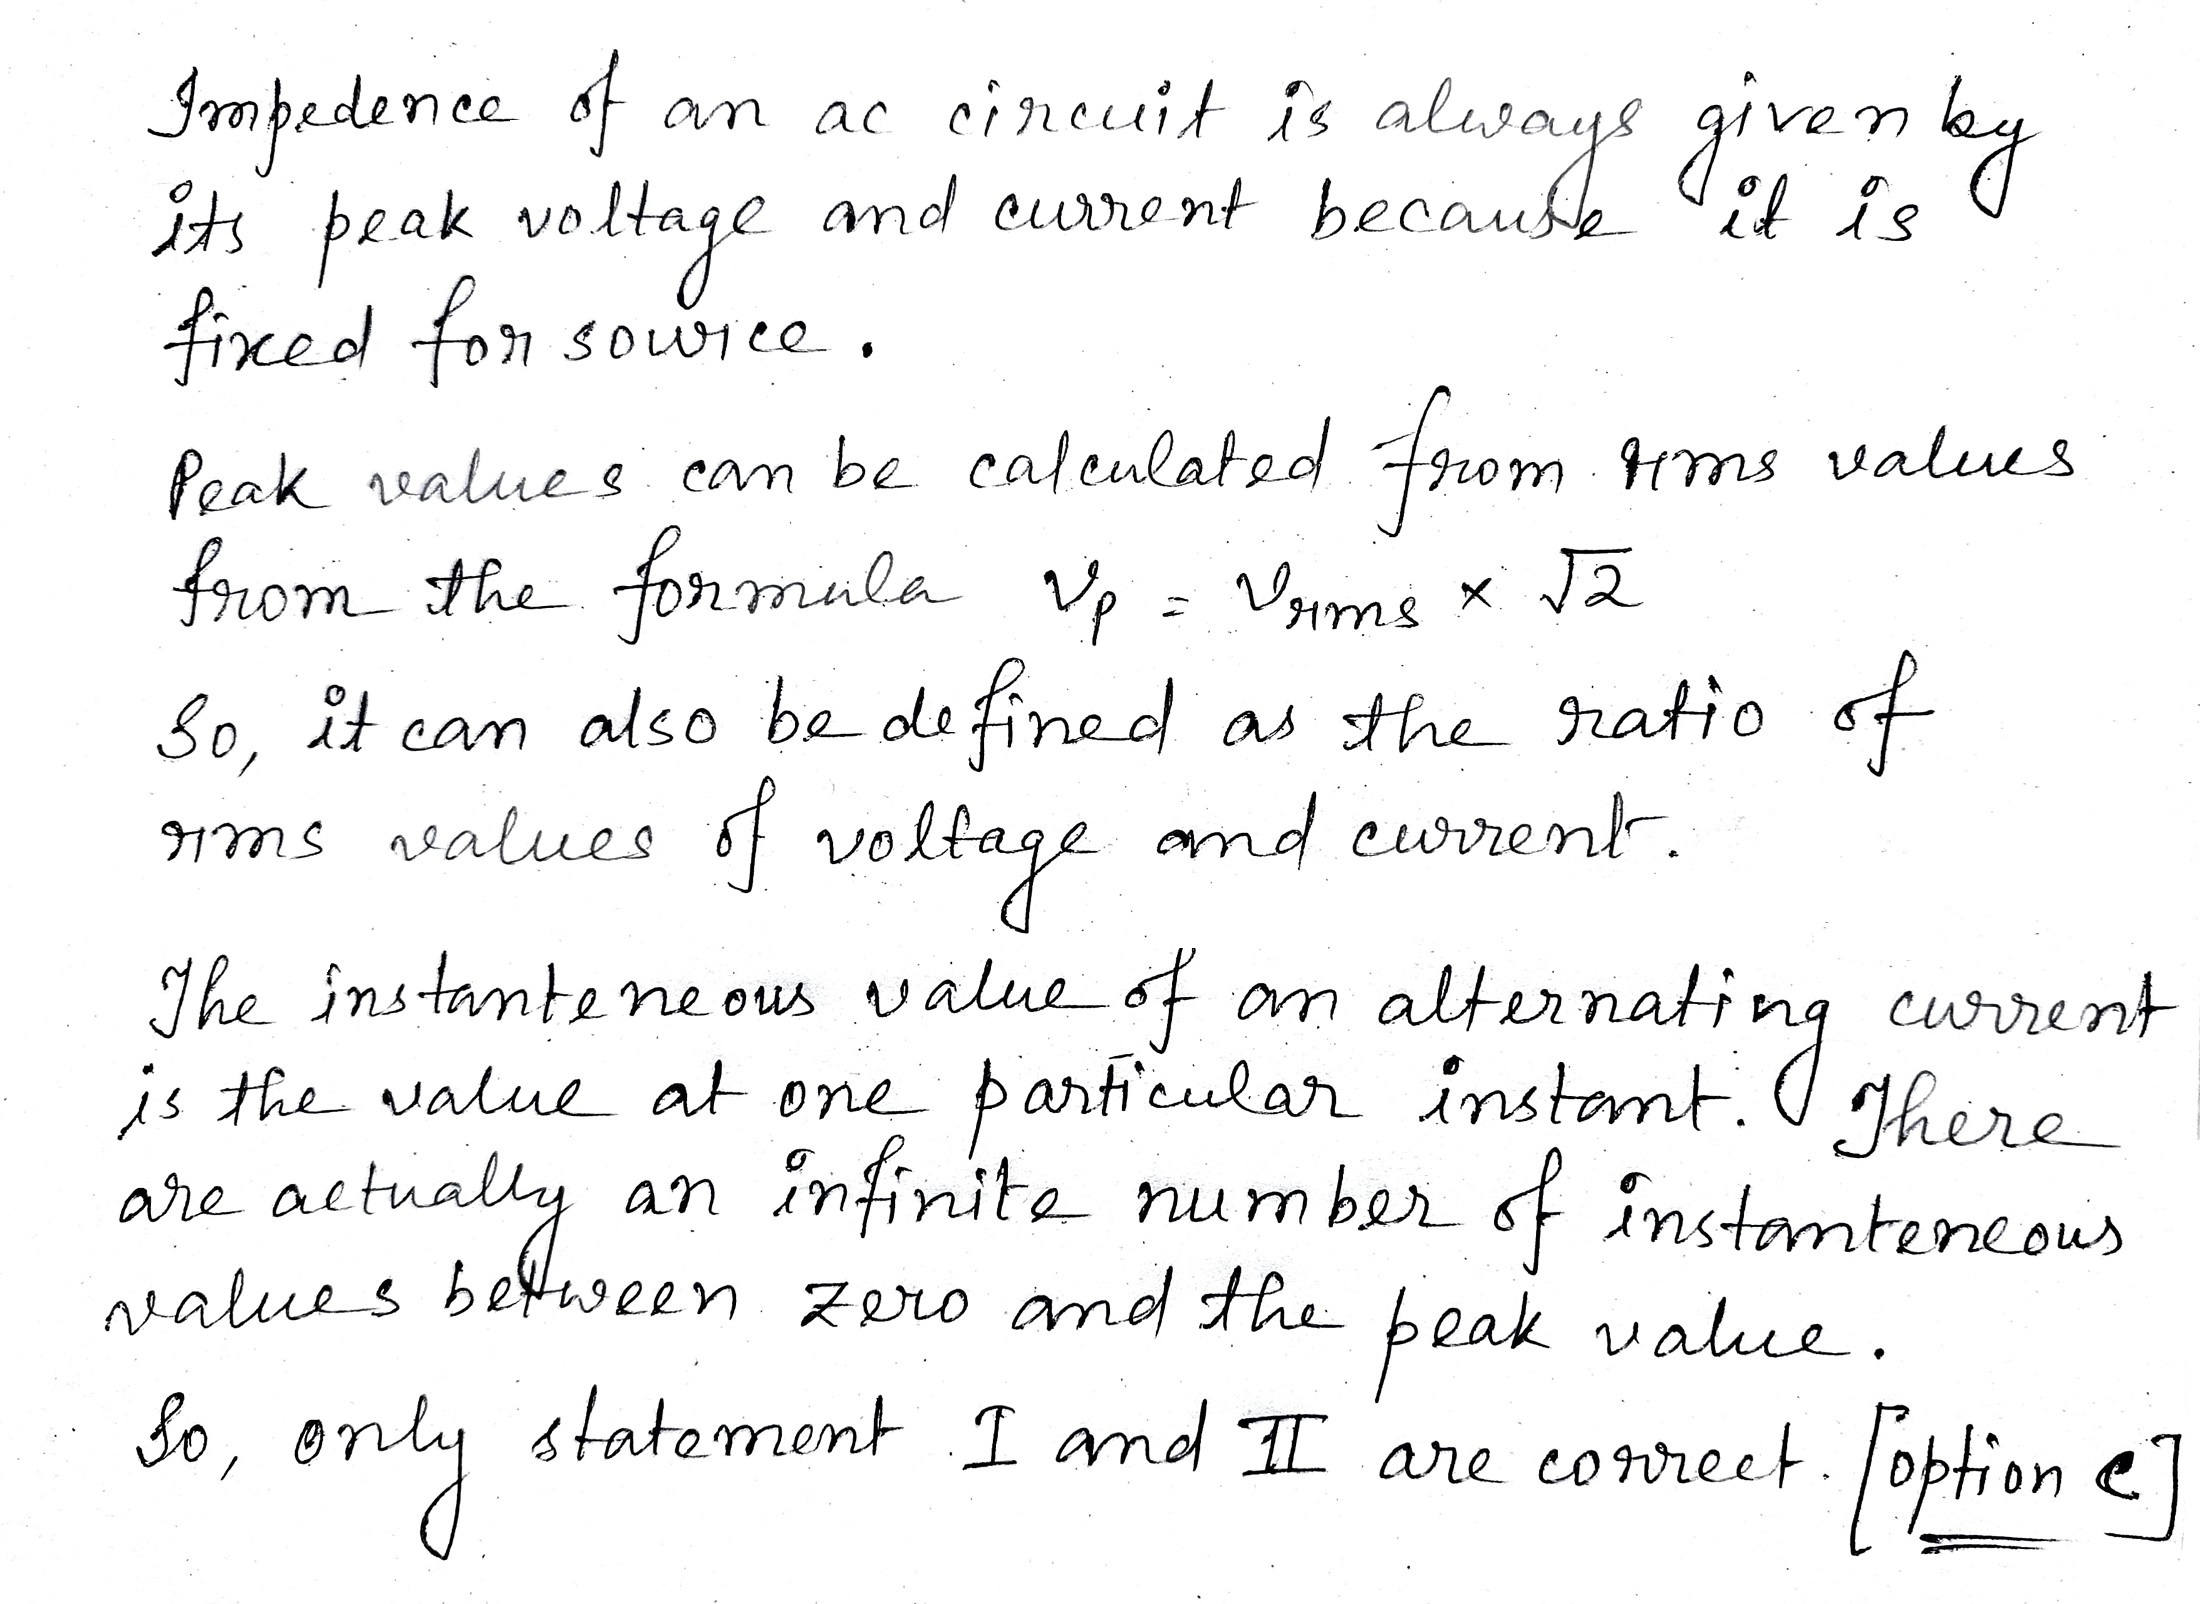 Impedence of an ac circuit is always given by
its peak voltage and current because it is
fixed for source.
Peak values can be calculated from rms values
from the formula Vp = Vrms × √2
So, it can also be defined as the ratio of
rms values of voltage and current.
The instanteneous value of an alternating current
is the value at one particular instant. There
are actually an infinite number of instanteneous
values between zero and the peak value.
So, only statement I and II are correct. [option c]